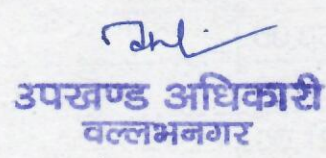 उपखण्ड अधिकारी
वल्लभनगर